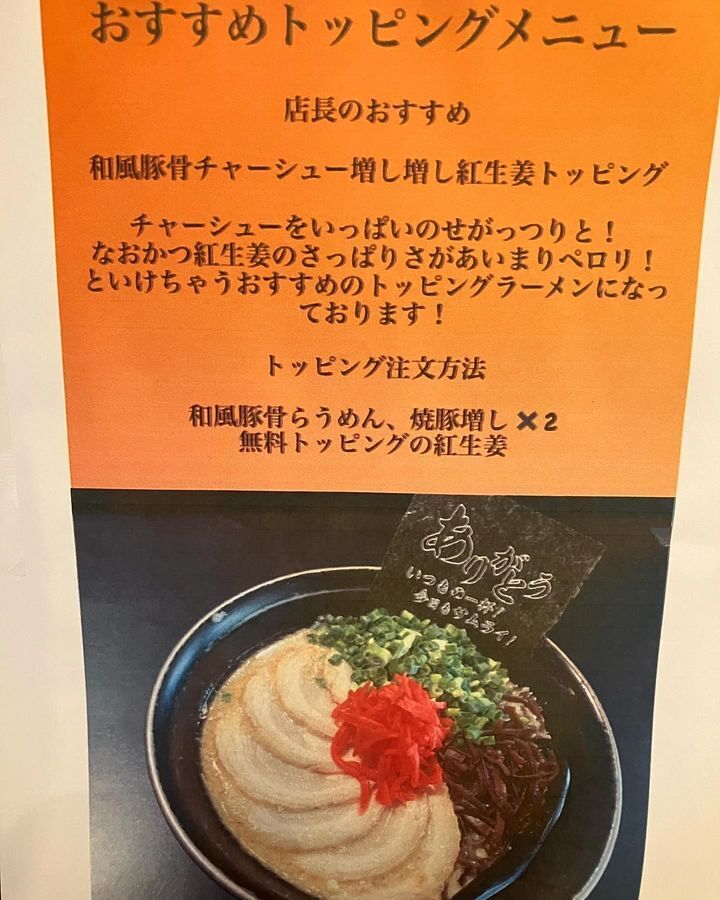 おすすめトッピングメニュー
店長のおすすめ
和風豚骨チャーシュー増し増し紅生姜トッピング
チャーシューをいっぱいのせがっつりと！
なおかつ紅生姜のさっぱりさがあいまりペロリ！
といけちゃうおすすめのトッピングラーメンになっ
ております！
トッピング注文方法
和風豚骨らうめん、焼豚増し✖2
無料トッピングの紅生姜
ありがとう
いつもの一杯！
今日もサムライ！